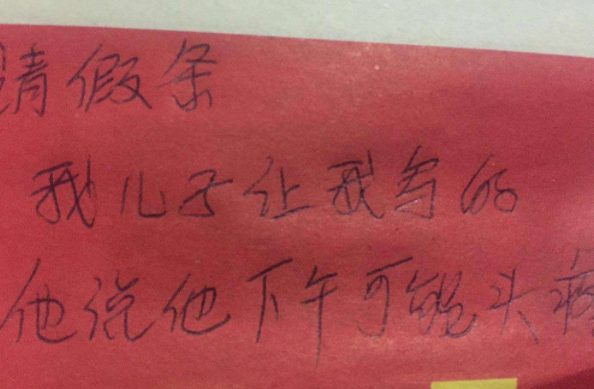 请假条
我儿子让我写的
他说他下午可能头疼